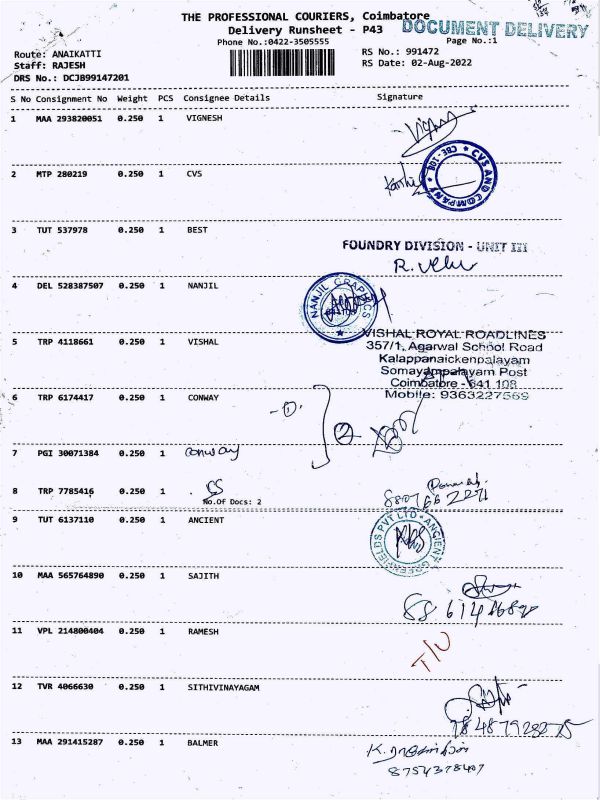 THE PROFESSIONAL COURIERS, Coimbatore
DOCUMENT DELIVERY
Delivery Runsheet - P43
Phone No.:0422-3505555
Page No.:1
Route: ANAIKATTI
RS No.: 991472
Staff: RAJESH
RS Date: 02-Aug-2022
DRS No.: DCJB99147201
S No Consignment No Weight PCS Consignee Details Signature
1 MAA 293820051 0.250 1 VIGNESH
2 MTP 280219 0.250 1 CVS
CVS AND COMPANY CBE-108
3 TUT 537978 0.250 1 BEST
FOUNDRY DIVISION - UNIT III
R. Velu
4 DEL 528387507 0.250 1 NANJIL
NANJIL GRAPHICS
5 TRP 4118661 0.250 1 VISHAL
VISHAL ROYAL ROADLINES
357/1, Agarwal School Road
Kalappanaickenpalayam
Somayampalayam Post
Coimbatore - 641 108
Mobile: 9363227569
6 TRP 6174417 0.250 1 CONWAY
-①.
②
7 PGI 30071384 0.250 1 Conway
8 TRP 7785416 0.250 1 SS
No.Of Docs: 2
9 TUT 6137110 0.250 1 ANCIENT
ANCIENT GREENFIELDS PVT LTD
10 MAA 565764890 0.250 1 SAJITH
11 VPL 214800404 0.250 1 RAMESH
T/U
12 TVR 4066630 0.250 1 SITHIVINAYAGAM
13 MAA 291415287 0.250 1 BALMER
8754378407